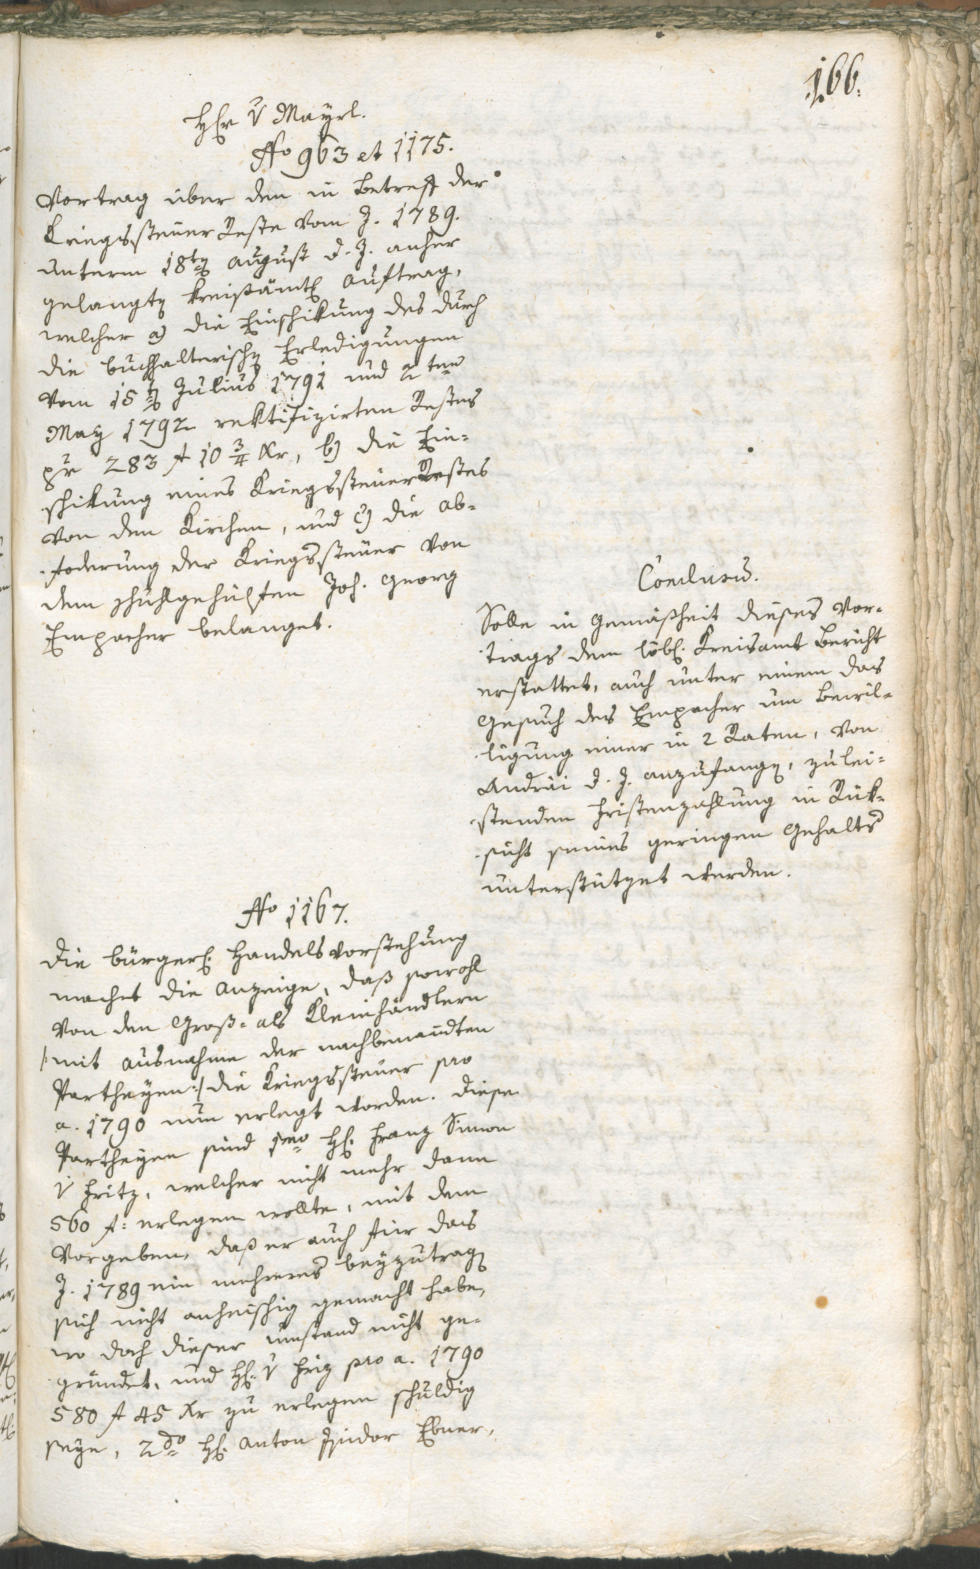 166.
Hr. v Mayrl.
No 963 et 1175.
Vortrag über den in Betreff der
Kriegssteuer Reste vom J. 1789.
unterm 18ten August d. J. anher
gelangten kreisämtl. Auftrag,
welcher a) die Einschikung des durch
die buchhalterischen Erledigungen
vom 15ten Julius 1791 und 2ten
May 1792 rektifizirten Restes
pr 283 f 10 3/4 Xr, b) die Ein-
schikung eines KriegssteuerRestes
von den Kirchen, und c) die Ab-
foderung der Kriegssteuer von
dem Schulgehülfen Joh. Georg
Empacher belanget.
Conclusum.
Solle in Gemäßheit dieses Vor-
trags dem löbl. Kreisamt Bericht
erstattet, auch unter einem das
Gesuch des Empacher um Bewil-
ligung einer in 2 Raten, von
Andräi d. J. anzufangen, zu lei-
stenden Fristenzahlung in Rük-
sicht seines geringen Gehalts
unterstützet werden.
No 1167.
Die bürgerl. Handelsvorstehung
machet die Anzeige, daß sowohl
von den Groß- als Kleinhändlern
/:mit Ausnahme der nachbenannten
Partheyen:/ die Kriegssteuer pro
a. 1790 nun erlegt worden. Diese
Partheyen sind 1mo Hl. Franz Simon
v Fritz, welcher nicht mehr dann
560 f: erlegen wollte, mit dem
Vorgeben, daß er auch für das
J. 1789 ein mehreres beyzutragen
sich nicht anheischig gemacht habe,
wo doch dieser Umstand nicht ge-
gründet, und Hl. v Friz pro a. 1790
580 f 45 Xr zu erlegen schuldig
seye, 2do Hl. Anton Isidor Ebner,